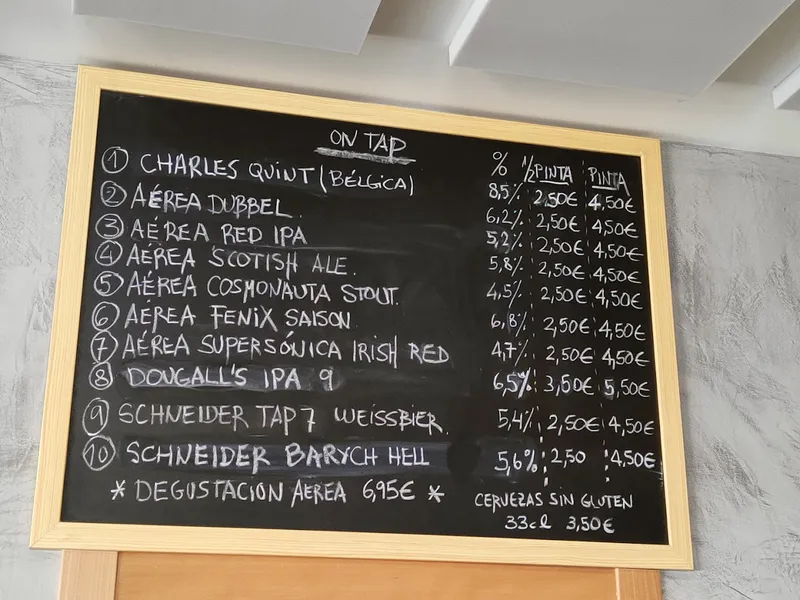 ON TAP
% ½ PINTA PINTA
① CHARLES QUINT (BÉLGICA) 8,5% 2,50€ 4,50€
② AÉREA DUBBEL 6,2% 2,50€ 4,50€
③ AÉREA RED IPA 5,2% 2,50€ 4,50€
④ AÉREA SCOTISH ALE. 5,8% 2,50€ 4,50€
⑤ AÉREA COSMONAUTA STOUT. 4,5% 2,50€ 4,50€
⑥ AÉREA FENIX SAISON 6,8% 2,50€ 4,50€
⑦ AÉREA SUPERSÓNICA IRISH RED 4,7% 2,50€ 4,50€
⑧ DOUGALL'S IPA 9 6,5% 3,50€ 5,50€
⑨ SCHNEIDER TAP 7 WEISSBIER. 5,4% 2,50€ 4,50€
⑩ SCHNEIDER BAYRCH HELL 5,6% 2,50 4,50€
* DEGUSTACION AEREA 6,95€ *
CERVEZAS SIN GLUTEN
33cl 3,50€